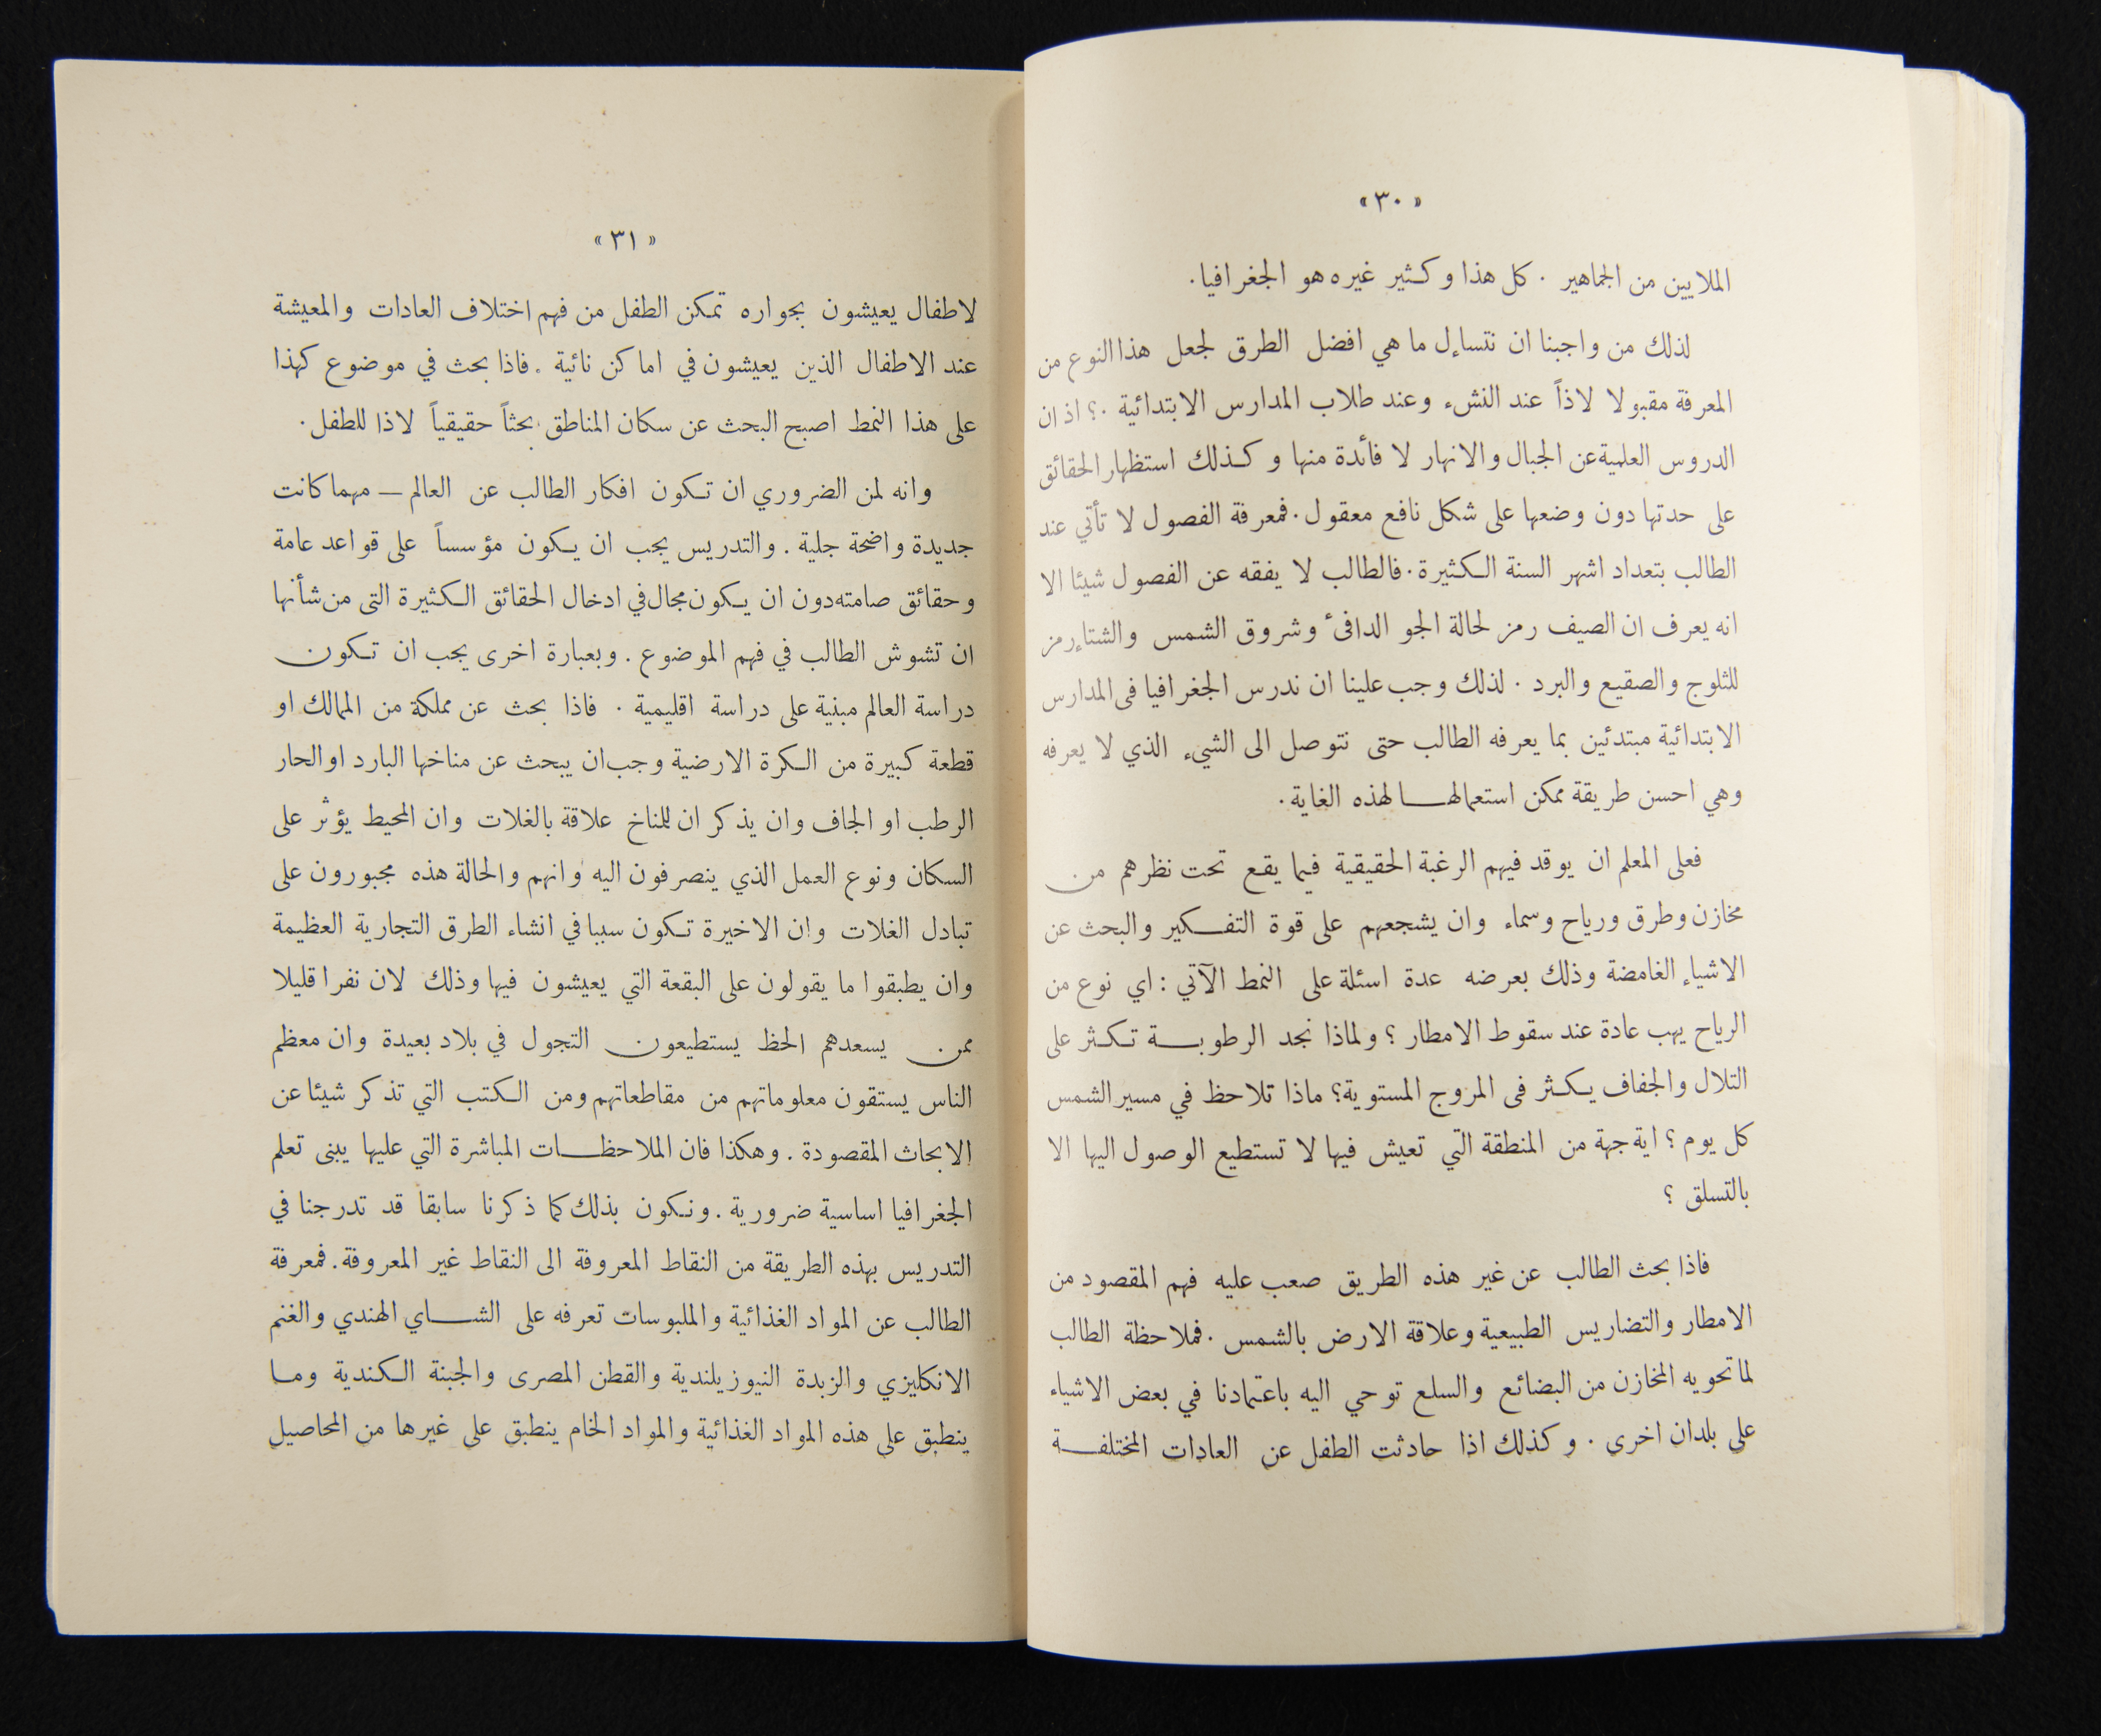 «٣٠»
الملايين من الجماهير . كل هذا وكثير غيره هو الجغرافيا .
لذلك من واجبنا ان نتساءل ما هي افضل الطرق لجعل هذا النوع من
المعرفة مقبولا لاذاً عند النشء وعند طلاب المدارس الابتدائية .؟ اذ ان
الدروس العلمية عن الجبال والانهار لا فائدة منها وكذلك استظهار الحقائق
على حدتها دون وضعها على شكل نافع معقول . فمعرفة الفصول لا تأتي عند
الطالب بتعداد اشهر السنة الكثيرة . فالطالب لا يفقه عن الفصول شيئا الا
انه يعرف ان الصيف رمز لحالة الجو الدافئ وشروق الشمس والشتاء رمز
للثلوج والصقيع والبرد . لذلك وجب علينا ان ندرس الجغرافيا فى المدارس
الابتدائية مبتدئين بما يعرفه الطالب حتى نتوصل الى الشيء الذي لا يعرفه
وهي احسن طريقة ممكن استعمالها لهذه الغاية .
فعلى المعلم ان يوقد فيهم الرغبة الحقيقية فيما يقع تحت نظرهم من
مخازن وطرق ورياح وسماء وان يشجعهم على قوة التفكير والبحث عن
الاشياء الغامضة وذلك بعرضه عدة اسئلة على النمط الآتي : اي نوع من
الرياح يهب عادة عند سقوط الامطار ؟ ولماذا نجد الرطوبة تكثر على
التلال والجفاف يكثر فى المروج المستوية؟ ماذا تلاحظ في مسير الشمس
كل يوم ؟ اية جهة من المنطقة التي تعيش فيها لا تستطيع الوصول اليها الا
بالتسلق ؟
فاذا بحث الطالب عن غير هذه الطريق صعب عليه فهم المقصود من
الامطار والتضاريس الطبيعية وعلاقة الارض بالشمس . فملاحظة الطالب
لما تحويه المخازن من البضائع والسلع توحي اليه باعتمادنا في بعض الاشياء
على بلدان اخرى . وكذلك اذا حادثت الطفل عن العادات المختلفة
«٣١»
لاطفال يعيشون بجواره تمكن الطفل من فهم اختلاف العادات والمعيشة
عند الاطفال الذين يعيشون في اماكن نائية . فاذا بحث في موضوع كهذا
على هذا النمط اصبح البحث عن سكان المناطق بحثاً حقيقياً لاذا للطفل .
وانه لمن الضروري ان تكون افكار الطالب عن العالم — مهما كانت
جديدة واضحة جلية . والتدريس يجب ان يكون مؤسساً على قواعد عامة
وحقائق صامته دون ان يكون مجال في ادخال الحقائق الكثيرة التى من شأنها
ان تشوش الطالب في فهم الموضوع . وبعبارة اخرى يجب ان تكون
دراسة العالم مبنية على دراسة اقليمية . فاذا بحث عن مملكة من الممالك او
قطعة كبيرة من الكرة الارضية وجب ان يبحث عن مناخها البارد او الحار
الرطب او الجاف وان يذكر ان للمناخ علاقة بالغلات وان المحيط يؤثر على
السكان ونوع العمل الذي ينصرفون اليه وانهم والحالة هذه مجبورون على
تبادل الغلات وان الاخيرة تكون سببا في انشاء الطرق التجارية العظيمة
وان يطبقوا ما يقولون على البقعة التي يعيشون فيها وذلك لان نفرا قليلا
ممن يسعدهم الحظ يستطيعون التجول في بلاد بعيدة وان معظم
الناس يستقون معلوماتهم من مقاطعاتهم ومن الكتب التي تذكر شيئا عن
الابحاث المقصودة . وهكذا فان الملاحظات المباشرة التي عليها يبنى تعلم
الجغرافيا اساسية ضرورية . ونكون بذلك كما ذكرنا سابقا قد تدرجنا في
التدريس بهذه الطريقة من النقاط المعروفة الى النقاط غير المعروفة . فمعرفة
الطالب عن المواد الغذائية والملبوسات تعرفه على الشاي الهندي والغنم
الانكليزي والزبدة النيوزيلندية والقطن المصرى والجبنة الكندية وما
ينطبق على هذه المواد الغذائية والمواد الخام ينطبق على غيرها من المحاصيل